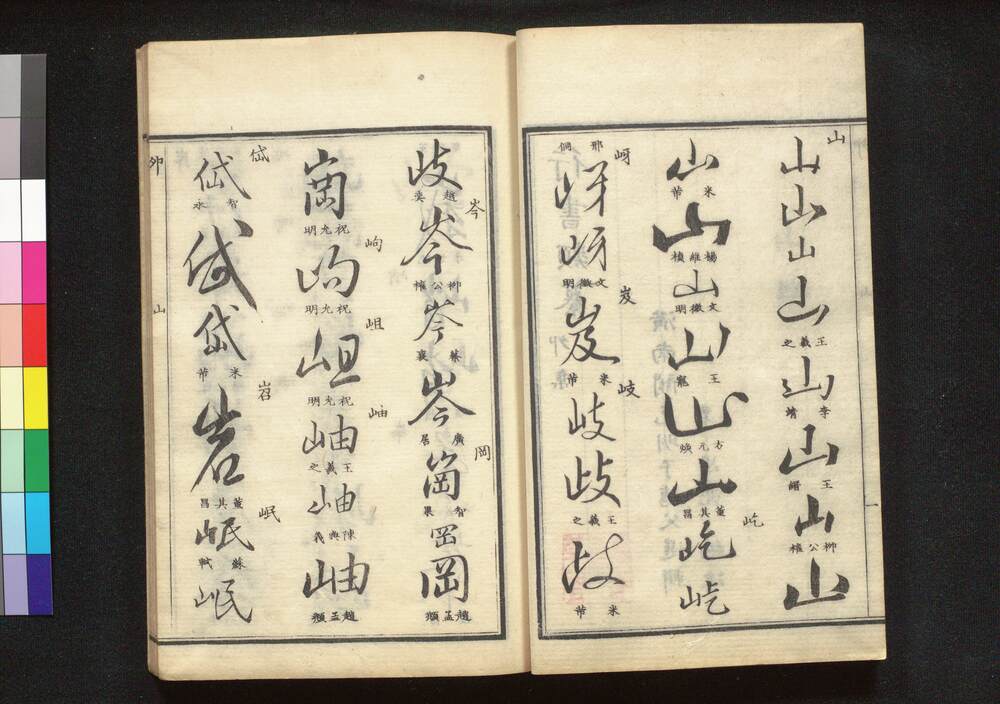 山
山
山
山
山
王羲之
山
李靖
山
王縉
山
柳公權
山
山
米芾
山
楊維楨
山
文徵明
山
王寵
山
方元煥
山
董其昌
屹
屹
屹
岈
岈
邢侗
岈
文徵明
岌
岌
米芾
岐
岐
岐
王羲之
岐
米芾
一
岐
趙奕
岑
岑
柳公權
岑
蔡襄
岑
廣居
岡
岡
智果
岡
岡
趙孟頫
崗
祝允明
岣
岣
祝允明
岨
岨
祝允明
岫
岫
王羲之
岫
陳與義
岫
趙孟頫
岱
岱
智永
岱
岱
米芾
岩
岩
董其昌
岷
岷
蘇軾
岷
卯
山